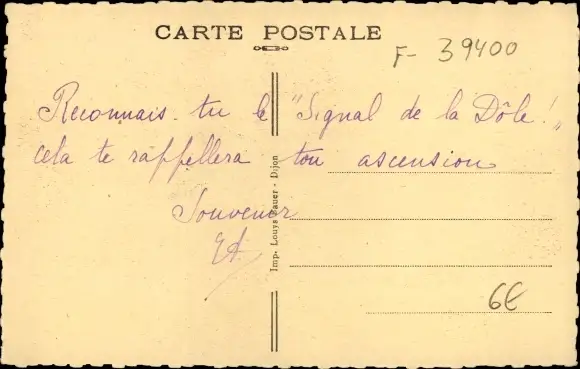 CARTE POSTALE
F- 39400
Reconnais-tu le "Signal de la Dôle!"
cela te rappellera ton ascension
Souvenir
Imp. Louys Bauer - Dijon
6€